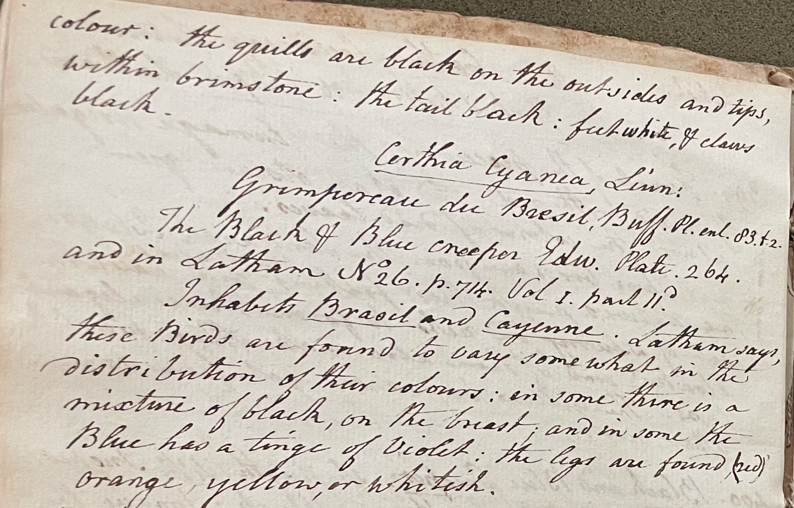 colour: the quills are black on the outsides and tips,
within brimstone: the tail black: feet white, & claws
black.
Certhia Cyanea, Linn:
Grimpereau du Bresil, Buff. Pl. enl. 83. f. 2.
The Black & Blue creeper Edw. Plate. 264.
and in Latham No 26. p. 714. Vol I. part IId
Inhabits Brasil and Cayenne. Latham says,
these Birds are found to vary somewhat in the
distribution of their colours: in some there is a
mixture of black, on the breast; and in some the
Blue has a tinge of Violet: the legs are found (red)
orange, yellow, or whitish.